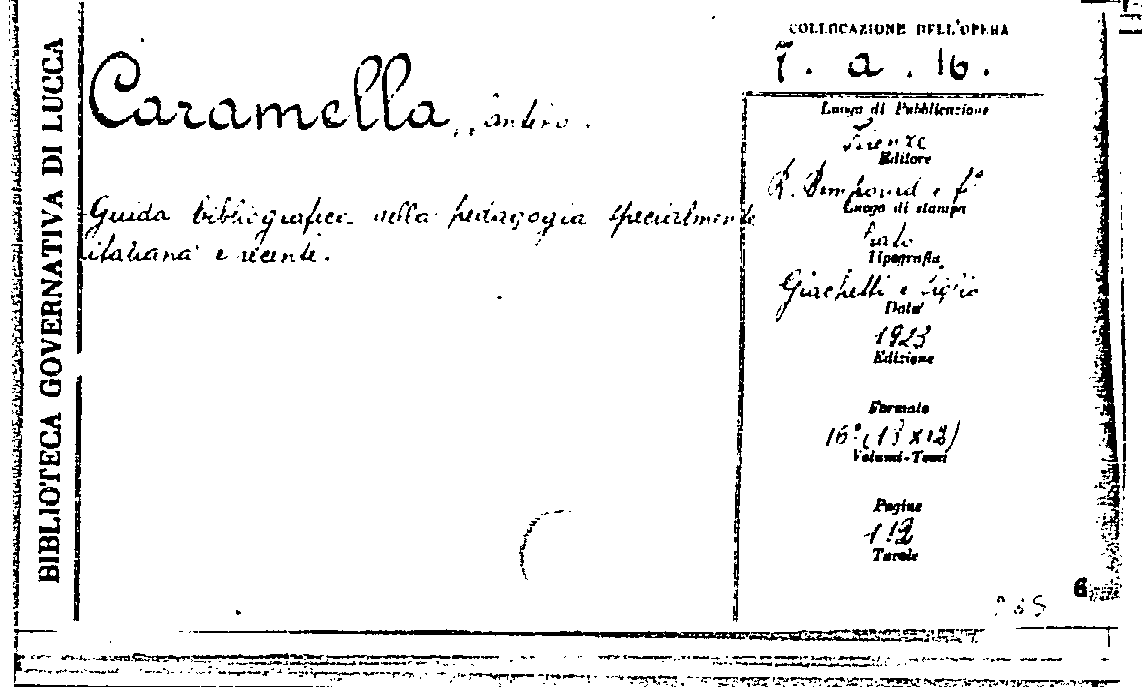 BIBLIOTECA GOVERNATIVA DI LUCCA
Caramella
Guida bibliografica della pedagogia specialmente
italiana e recente.
COLLOCAZIONE DELL'OPERA
7. a. 16.
Luogo di Pubblicazione
Firenze
Editore
R. Bemporad e f.º
Luogo di stampa
Prato
Tipografia
Giachetti e figlio
Data
1923
Edizione
Formato
16º (13 x 12)
Volumi-Tomi
Pagine
112
Tavole
6